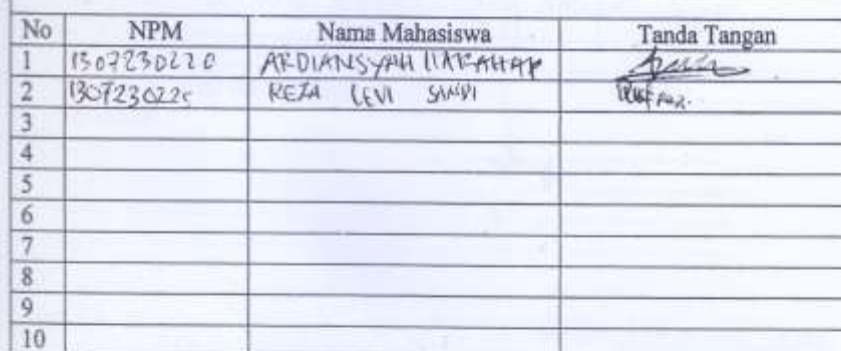 No NPM Nama Mahasiswa Tanda Tangan
1 1307230220 ARDIANSYAH HARAHAP
2 REZA LEVI SANDI
3
4
5
6
7
8
9
10